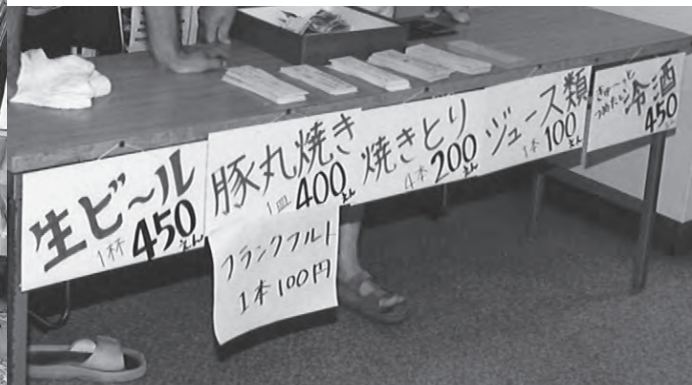 生ビ〜ル
1杯450えん
豚丸焼き
1皿400えん
フランクフルト
1本100円
焼きとり
4本200えん
ジュース類
1本100えん
きゅ〜っと
つめたいところ
冷酒
450えん